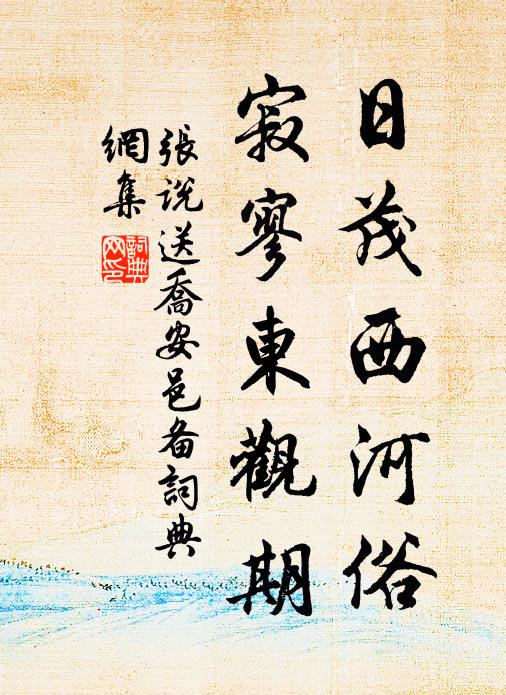 日茂西河俗
寂寥東觀期
張説送喬安邑备詞典
網集
詞典
网印